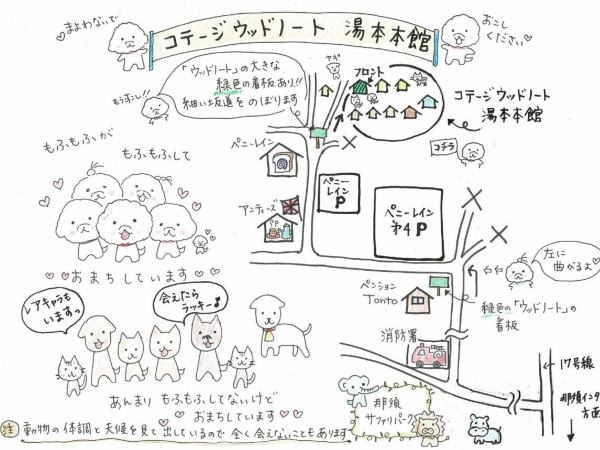 まよわないで
コテージ ウッドノート 湯本本館
おこし
ください
「ウッドノート」の大きな
緑色の看板あり!!
細い坂道をのぼります
もうすこし!!
ヤギ
フロント
コテージウッドノート
湯本本館
コチラ
もふもふが
もふもふして
おまちしています
ペニーレイン
アンティーズ
ペニー
レイン
P
ペニーレイン
才4P
左に
曲がるよ
ペンション
Tonto
緑色の「ウッドノート」の
看板
消防署
レアキャラも
いますっ
会えたら
ラッキー♪
あんまり もふもふしてないけど
おまちしています
那須
サファリパーク
17号線
那須インター
方面
注 動物の体調と天候を見て出しているので全く会えないこともあります